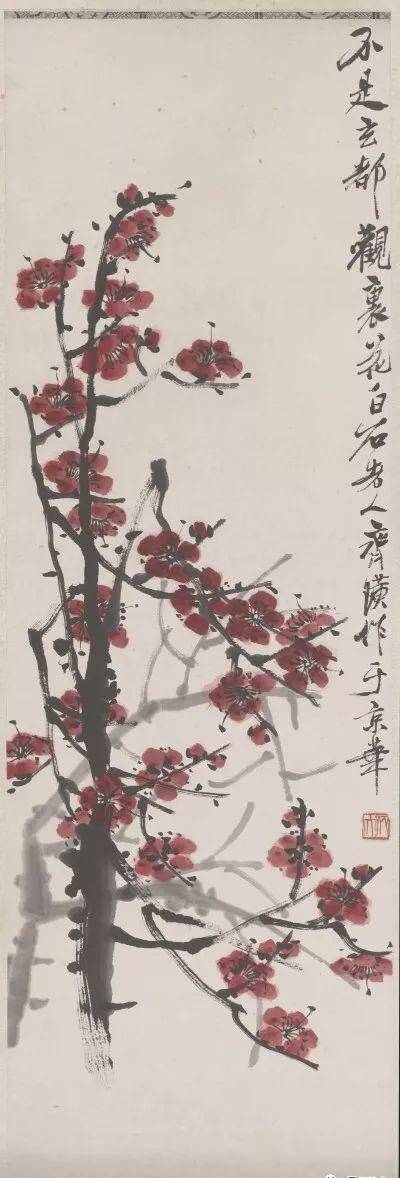 不是玄都觀裏花白石老人齊璜作于京華